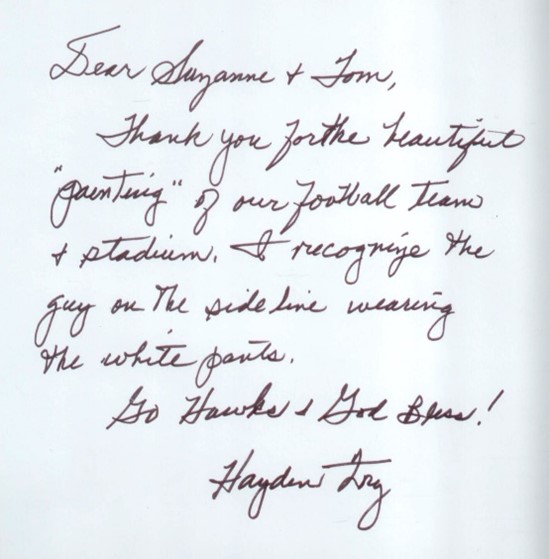 Dear Suzanne + Tom,
Thank you for the beautiful
"painting" of our football team
+ stadium. I recognize the
guy on the sideline wearing
the white pants.
Go Hawks & God Bless!
Hayden Fry